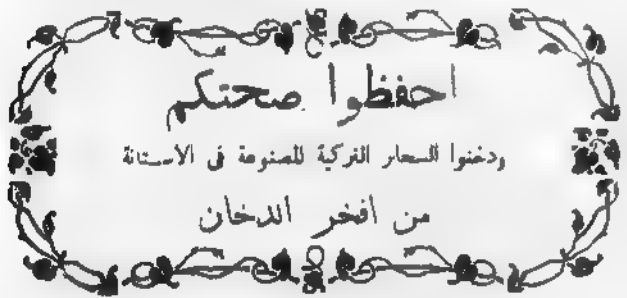 احفظوا صحتكم
ودخنوا السحاير التركية المصنوعة فى الاستانة
من افخر الدخان